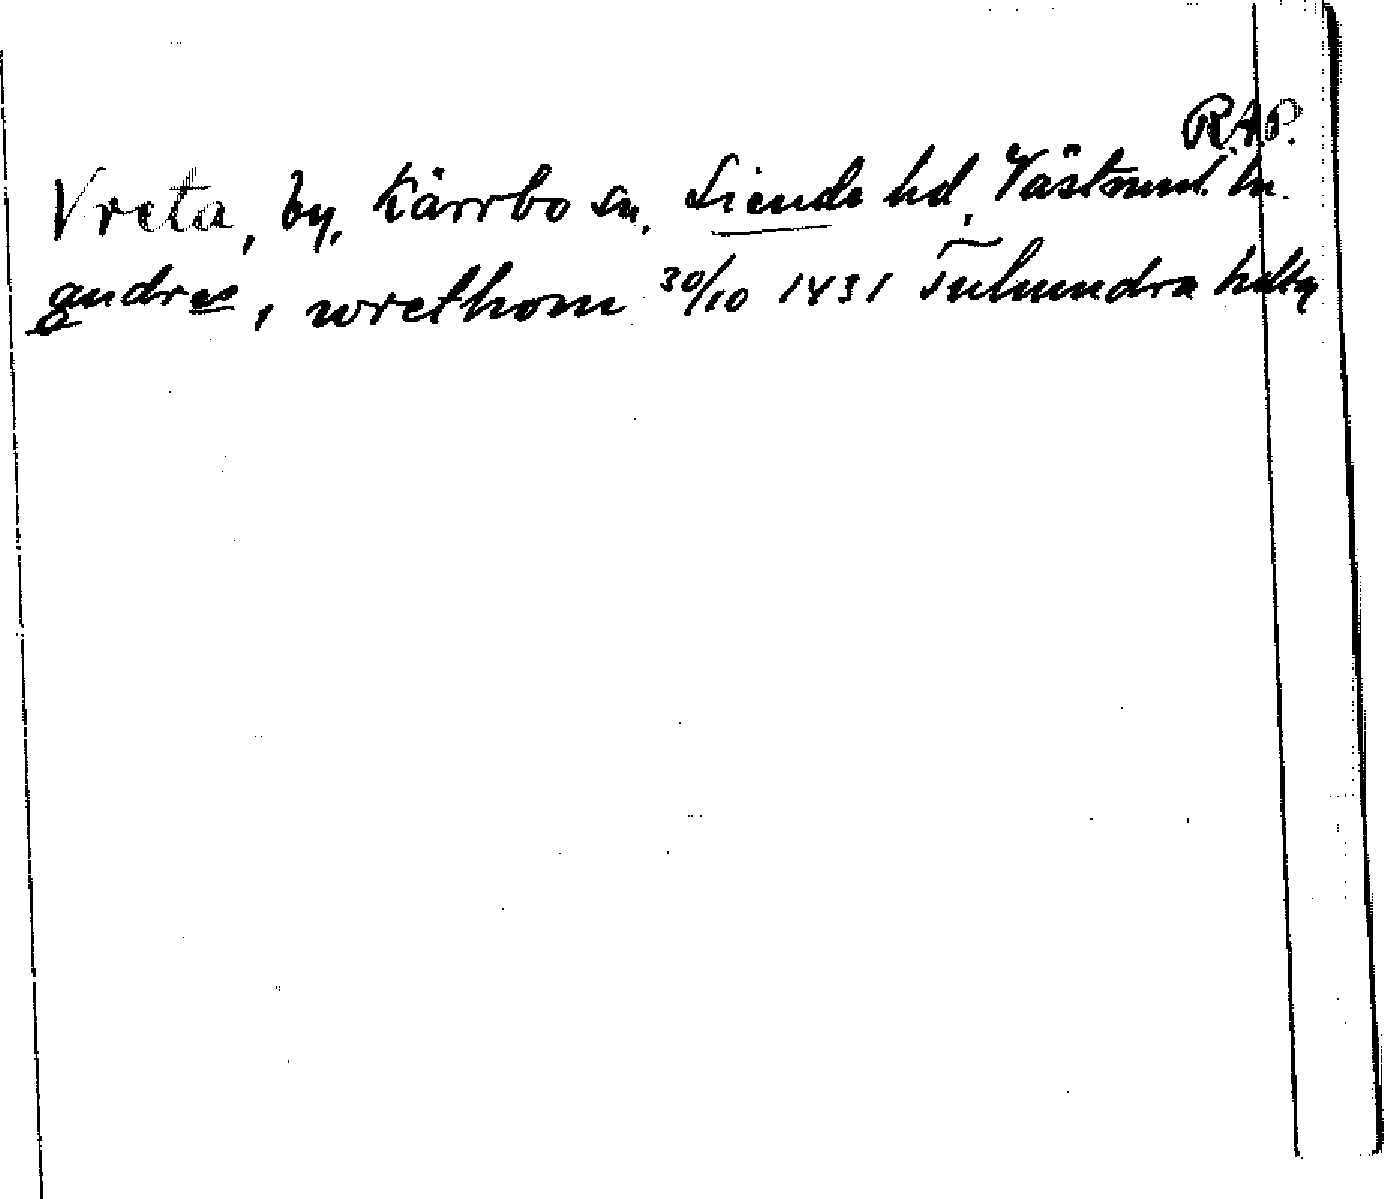 R.A.P.
Vreta, by, Kärrbo sn. Siende hd, Västmanl. ln.
andree, i wrethom 30/10 1431 Tuhundra